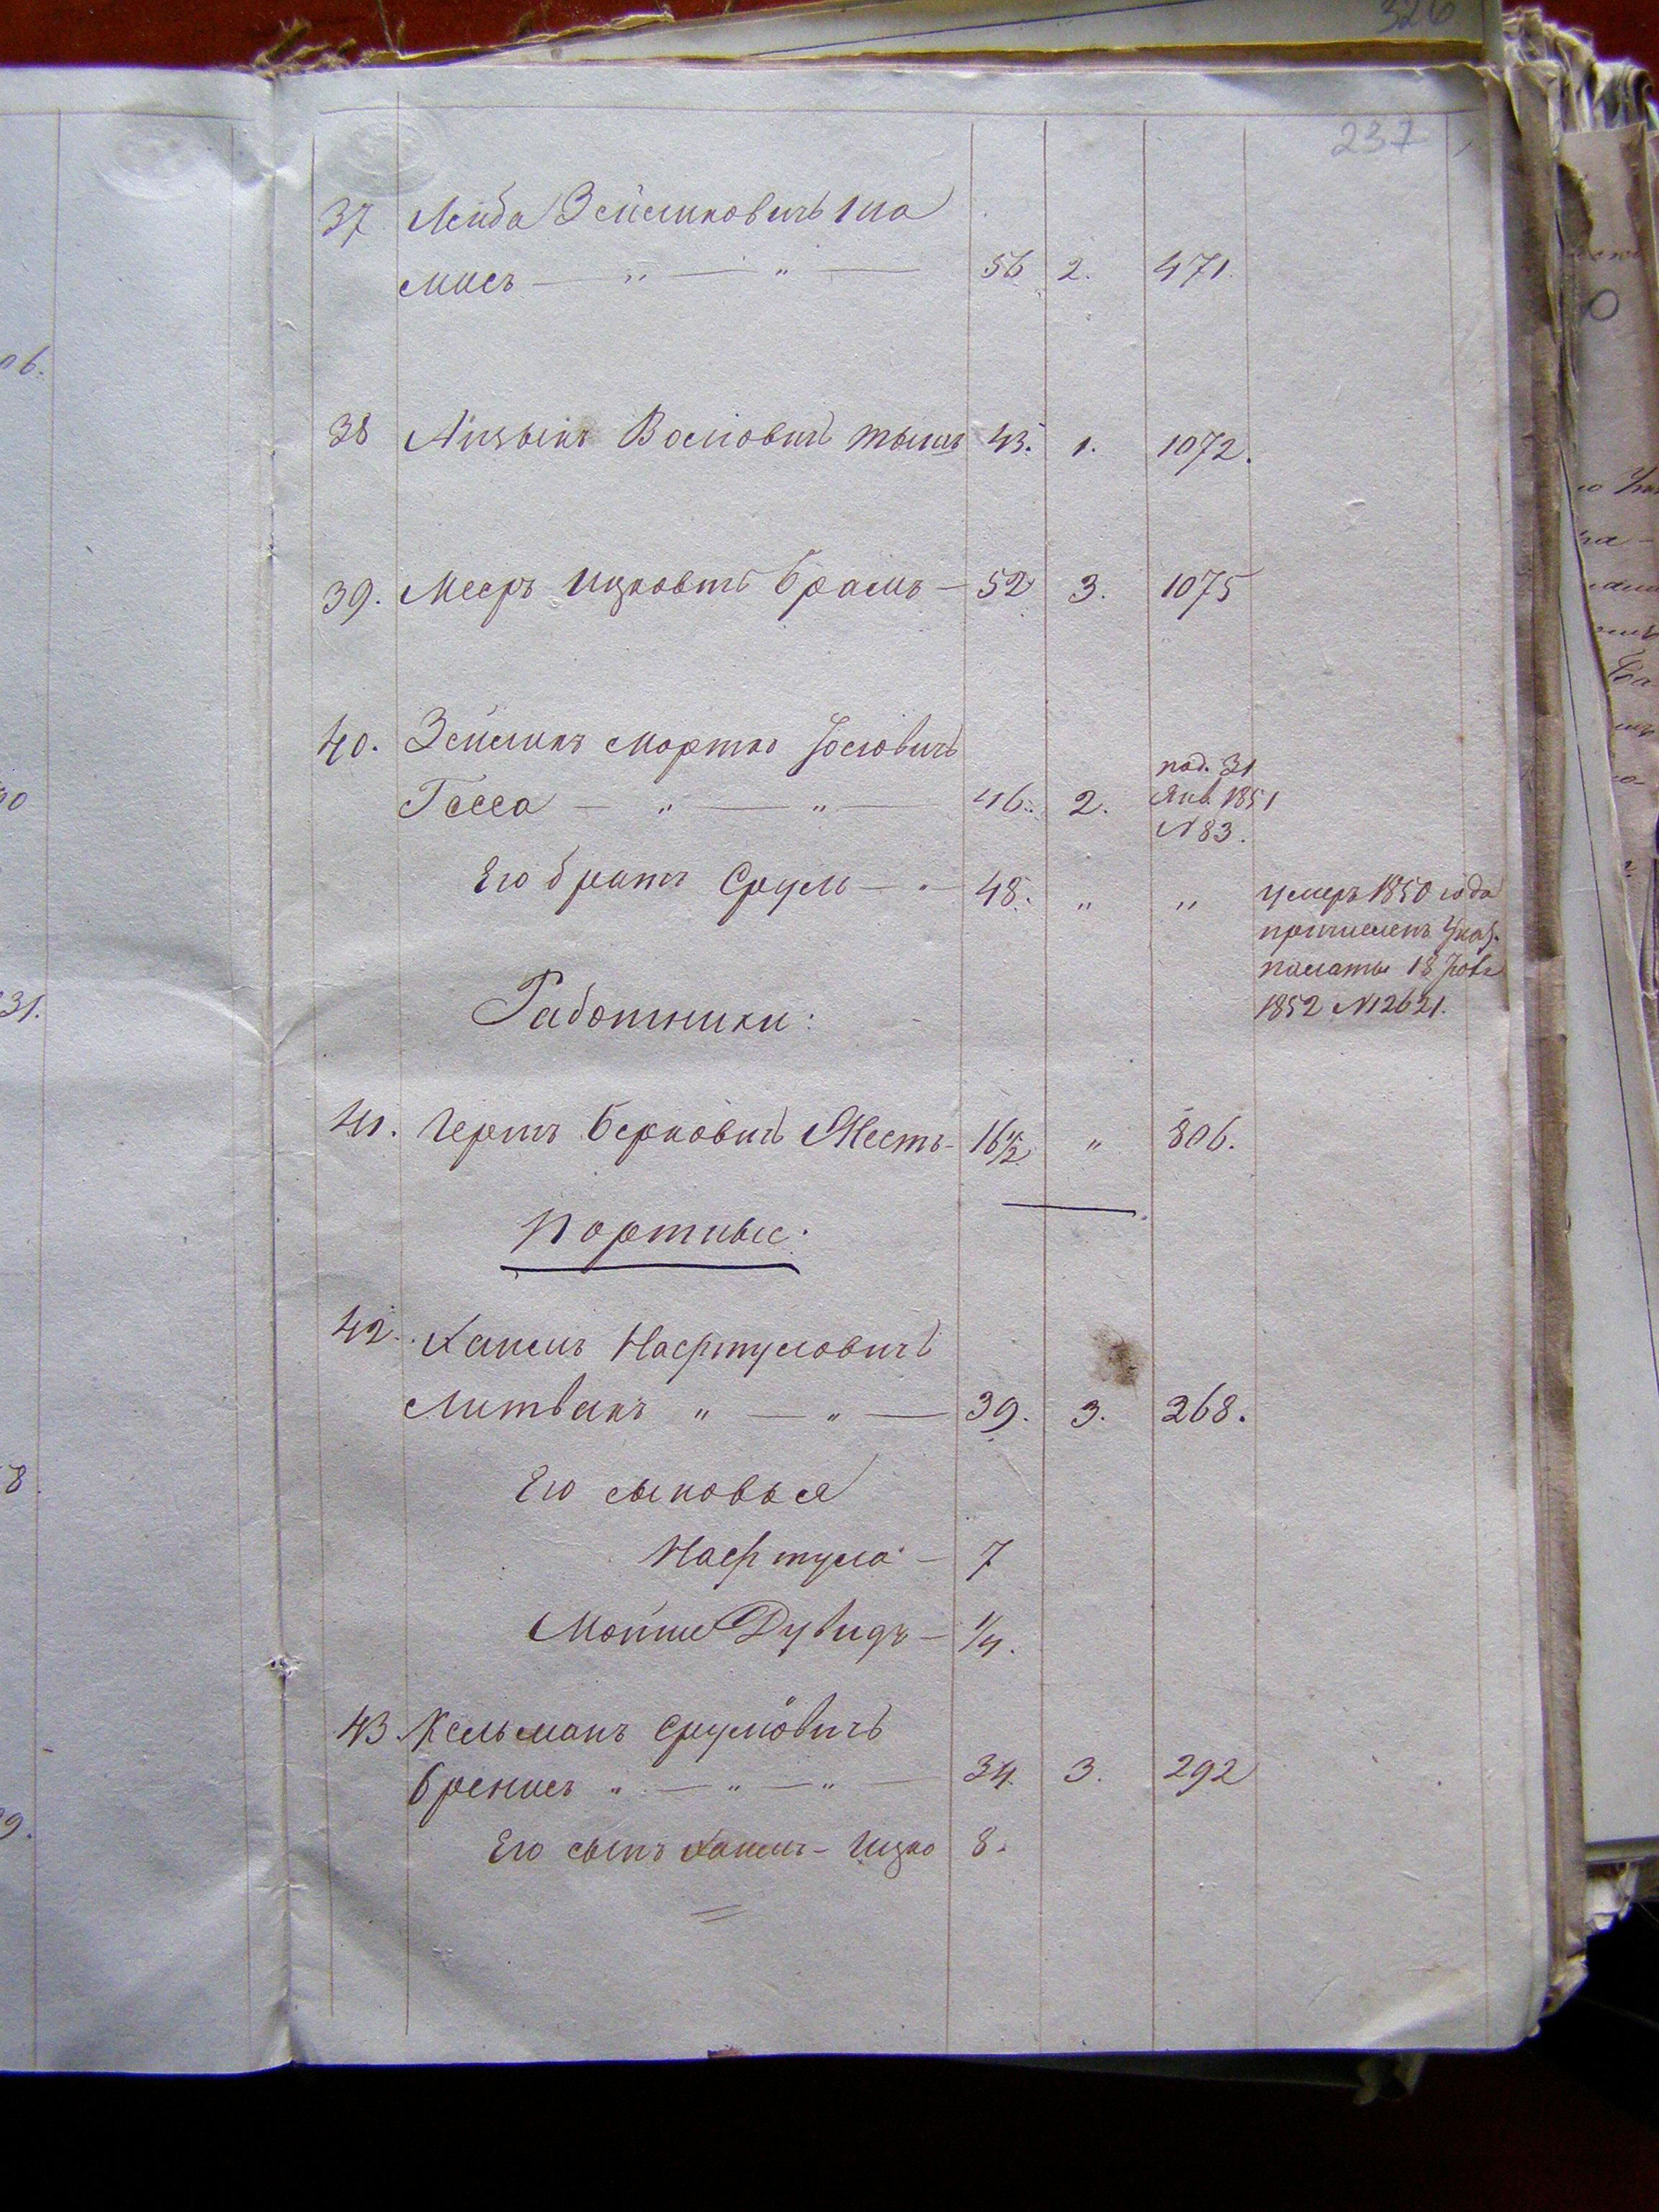 326
237
37 Лейба Зейликовичъ Ша
мисъ — „ — „ — 56 2. 471.
38 Айзыкъ Волловичъ 43. 1. 1072.
39. Мееръ Ицковичъ Брамъ — 52 3. 1075
40. Зейликъ Мортко Іосіовичъ
под. 31
Гесса — „ — „ — 46. 2. Янв. 1851
N 83.
Его братъ Сруль — „ — 48. „ „ умеръ 1850 года
причисленъ Указ.
палаты 18 Нояб
1852 N 2621.
Работники:
41. Гершъ Берковичъ 16 1/2 „ 806.
Портные:
42. Хаимъ Нафтуловичъ
Литвакъ „ — „ — 39. 3. 268.
Его сыновья
Нафтула — 7
Мойше Дувидъ — 1/4.
43. Кельманъ Срулёвичъ
„ — „ — „ — 34. 3. 292
Его сынъ Хаимъ-Ицко 8.
06.
31.
8.
9.